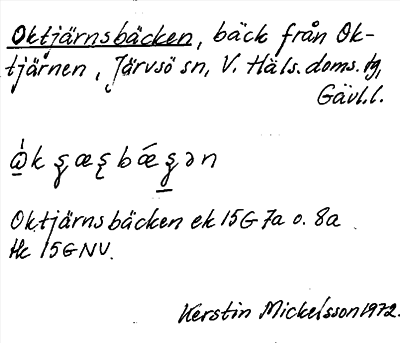 Oktjärnsbäcken, bäck från Ok-
tjärnen, Järvsö sn, V. Häls. doms. tg,
Gävl. l.
Oktjärnsbäcken ek 15G 7a o. 8a
Hk 15GNV.
Kerstin Mickelsson 1972.